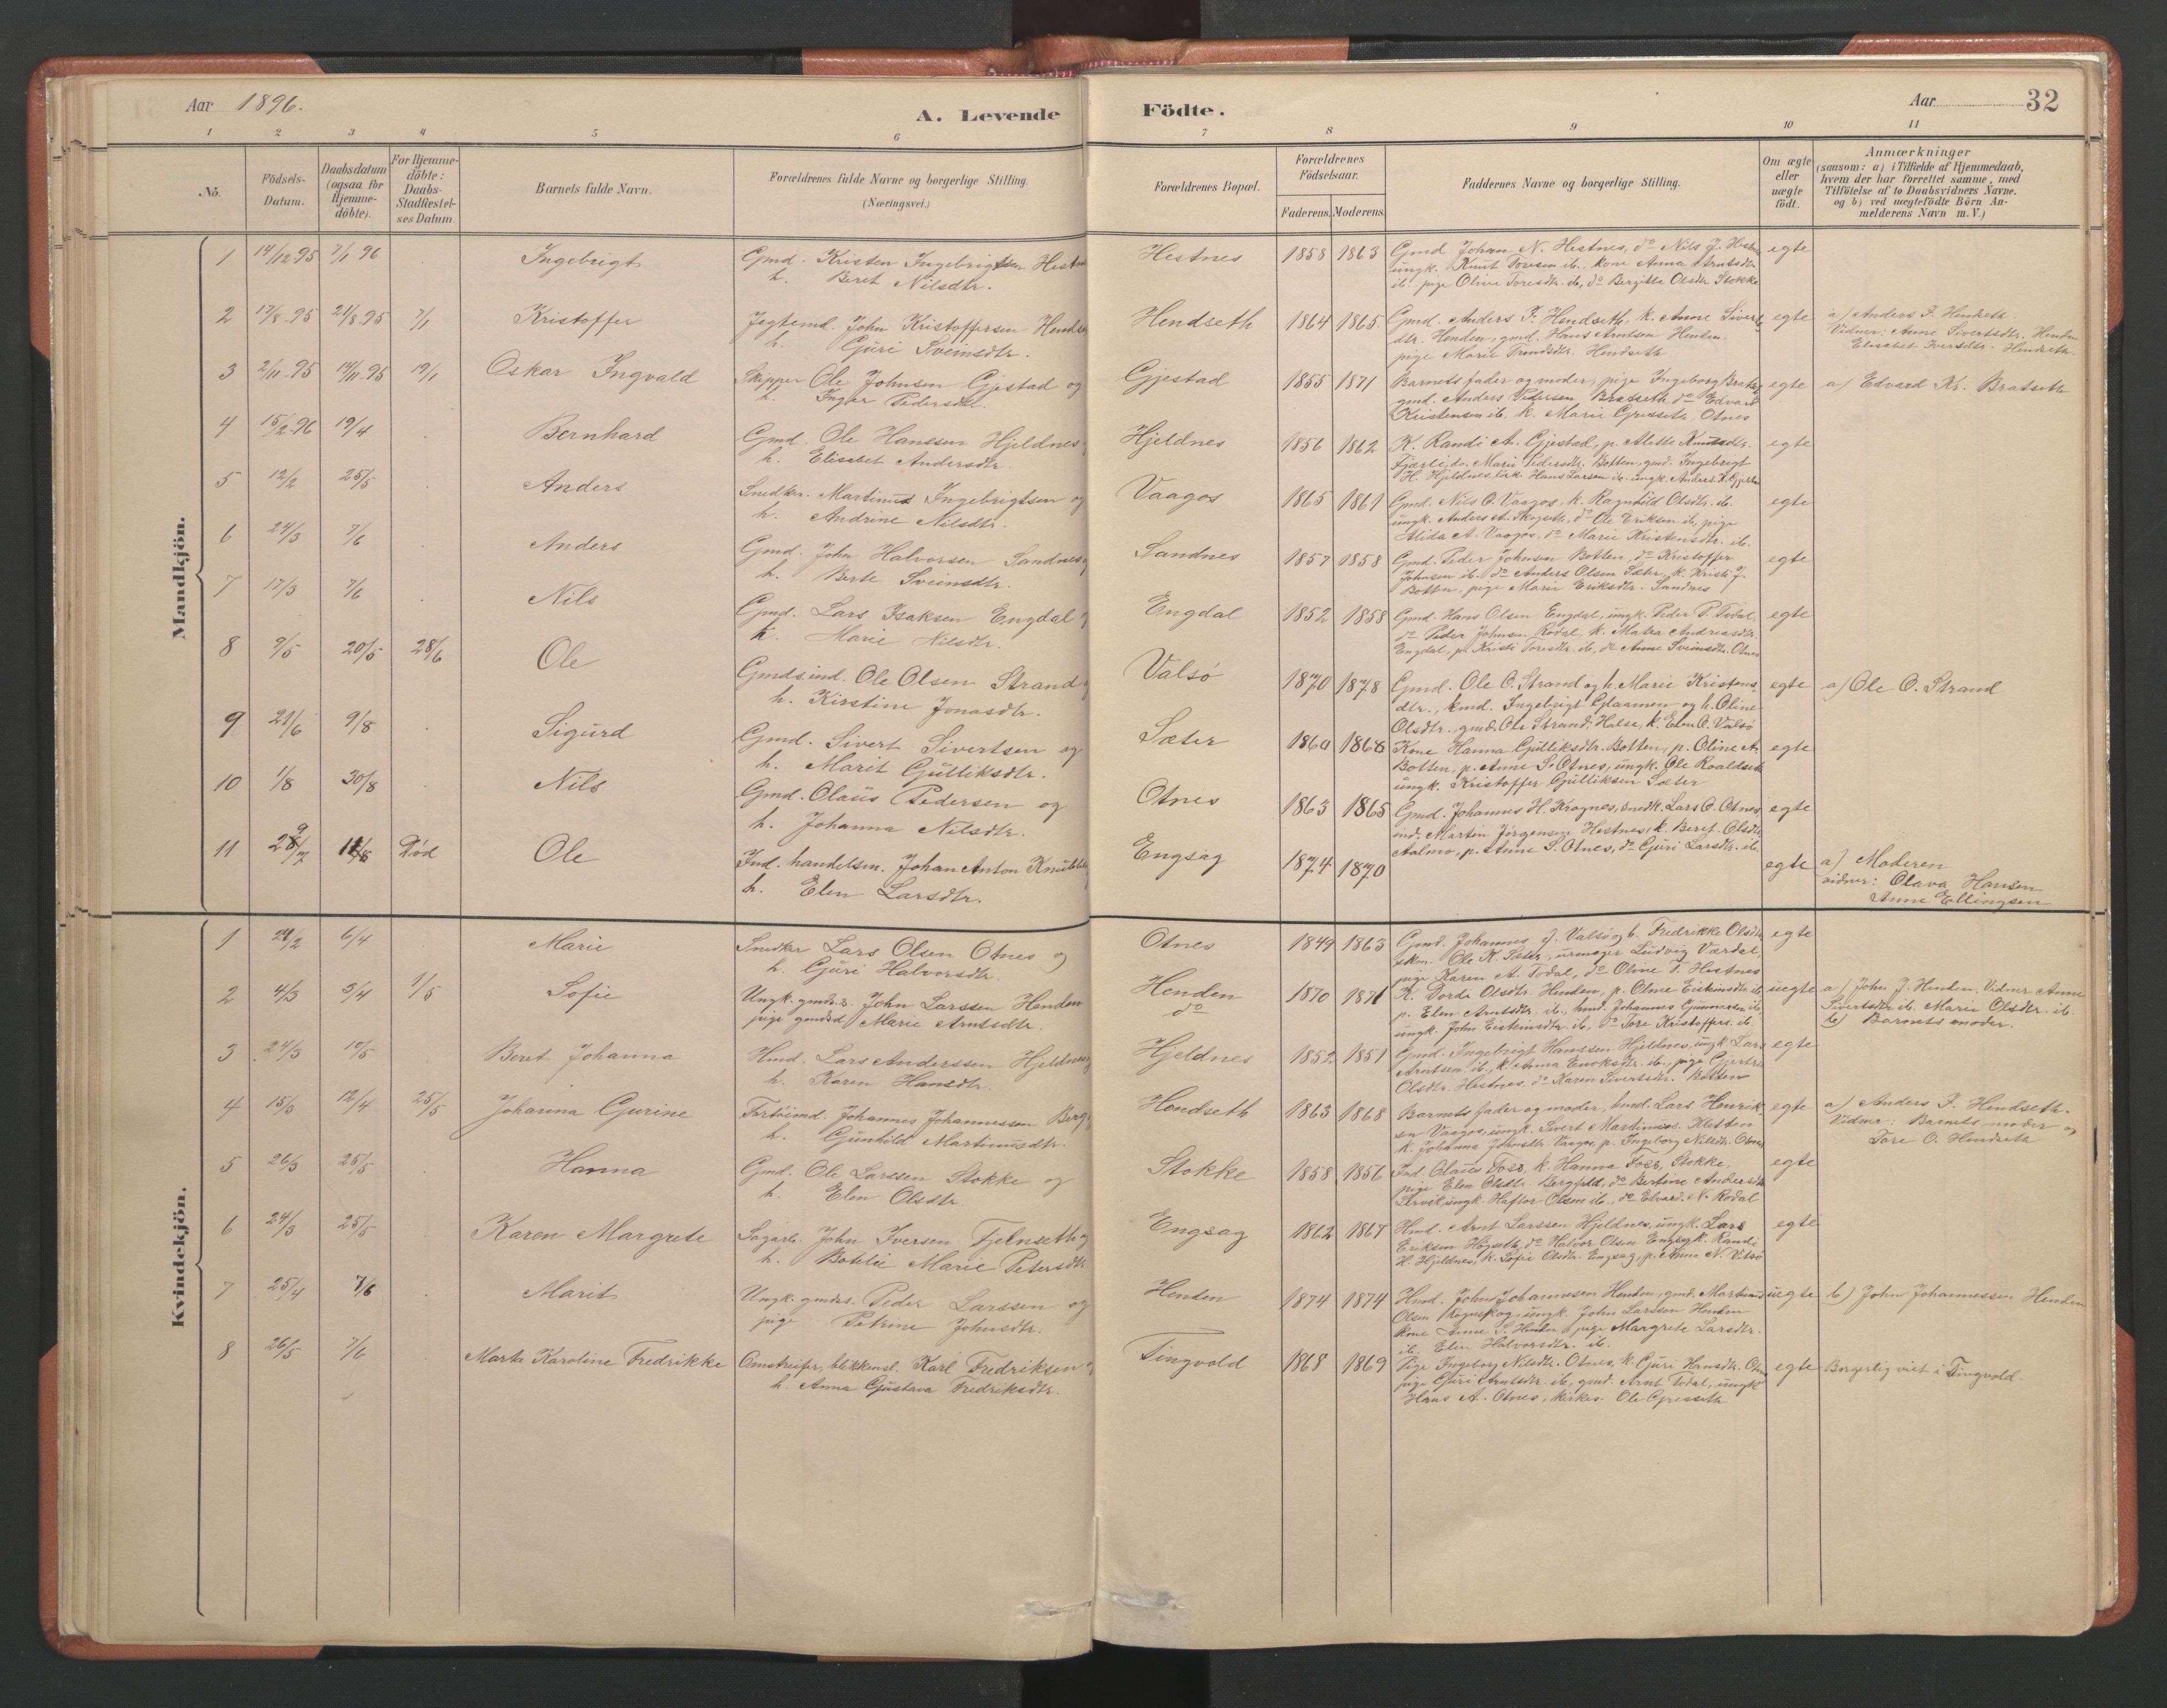 Aar 1896.
A. Levende Födte.
Aar 32
1 2 3 4 5 6 7 8 9 10 11
No.
Födsels-Datum.
Daabsdatum (ogsaa for Hjemmedöbte).
For Hjemmedöbte: Daabs-Stadfæstelses Datum.
Barnets fulde Navn.
Forældrenes fulde Navne og borgerlige Stilling. (Næringsvei.)
Forældrenes Bopæl.
Forældrenes Födselsaar.
Faderens. Moderens.
Faddernes Navne og borgerlige Stilling.
Om ægte eller uægte födt.
Anmærkninger
(saasom: a) i Tilfælde af Hjemmedaab,
hvem der har forrettet samme, med
Tilföielse af to Daabsvidners Navne.
og b) ved uægtefödte Börn An-
melderens Navn m. V.)
Mandkjön.
1 14/12 95 7/1 96 Ingebrigt Gmd. Kristen Ingebrigtsen Hestnes Hestnes 1858 1863 Gmd Johan N. Hestnes, do Nils J. egte
h. Beret Nilsdtr. ungk. Knut Toresen ib. kone Anna Arntsdtr
ib. pige Olive Toresdtr. ib, do Bergitte Olsdtr Stokke
2 17/8-95 21/8-95 7/1 Kristoffer Jegtemd. John Kristoffersen Hendseth 1864 1865 Gmd. Anders F. Hendseth, k. Anne Siverts egte a) Anders F. Hendseth
h. Guri Sveinsdtr. dtr. Henden, gmd. Hans Arntsen Henden Vidner: Anne Sivertsdtr. Henden
pige Marie Trondsdtr. Hendseth Elisabet Iversdtr. Hendseth
3 2/11-95 14/11-95 19/1 Oskar Ingvald Skipper Ole Johnsen Gjestad og Gjestad 1855 1871 Barnets fader og moder, pige Ingeborg egte a) Edvard Kr. Bratseth
h. Inger Pedersdtr. gmd. Anders Pedersen Bratseth do Edvard
Kristensen ib. k. Marie Otnes
4 15/2-96 19/4 Bernhard Gmd. Ole Hanssen Hjeldnes Hjeldnes 1856 1862 K. Randi A. Gjestad, p. Alette Knutsdtr. egte
h. Elisabet Andersdtr. Fjærli, do. Marie Pedersdtr. Botten, gmd. Ingebrigt
H. Hjeldnes, Hans Larsen ib. ungk. Anders
5 12/2 25/5 Anders Snedker. Martinus Ingebrigtsen og Vaagos 1865 1861 Gmd. Nils O. Vaagos, k. Ragnhild Olsdtr. ib. egte
h. Andrine Nilsdtr. ungk. Anders A. Skogseth, do Ole Eriksen ib, pige
Alida A. Vaagos, do Marie Kristensdtr. ib.
6 24/3 7/6 Anders Gmd. John Halvorsen Sandnes Sandnes 1857 1858 Gmd. Peder Johnsen Botten, do Kristoffer egte
h. Berte Sveinsdtr. Johnsen ib. do Anders Olsen Sæter, k. Kristi J.
Botten, pige Marie Eriksdtr. Sandnes
7 17/3 7/6 Nils Gmd. Lars Isaksen Engdal Engdal 1852 1858 Gmd. Hans Olsen Engdal, ungk. Peder P. Todal, egte
h. Marie Nilsdtr. do Peder Johnsen Rodal, k. Andreasdtr.
Engdal, p. Kristi Toresdtr. ib, do Anne Sveinsdtr. Otnes
8 9/5 20/5 28/6 Ole Gmdsind. Ole Olsen Strand Valsö 1870 1878 Gmd. Ole O. Strand og h. Marie Kristens- egte a) Ole O. Strand
h. Kirstine Jonasdtr. dtr., kmd. Ingebrigt Glaamen og h. Oline
Olsdtr. gmd. Ole Strand, Halse, k. Elen O. Valsö
9 21/6 9/8 Sigurd Gmd. Sivert Sivertsen og Sæter 1860 1868 Kone Hanna Gulliksdtr. Botten, p. Oline A. egte
h. Marit Gulliksdtr. Botten, p. Anne S. Otnes, ungk. Ole Roaldseth
ungk. Kristoffer Gulliksen Sæter
10 1/8 30/8 Nils Gmd. Olaus Pedersen og Otnes 1863 1865 Gmd. Johannes H. Krognes, snedk. Lars O. Otnes egte
h. Johanna Nilsdtr. ind. Martin Jörgensen Hestnes, k. Beret Olsdtr
Aalmo, p. Anne S. Otnes, do Guri Larsdtr. ib.
11 29/7 11/8 Död Ole Ind. handelsm. Johan Anton Engsag 1874 1870 egte a) Moderen
h. Elen Larsdtr. vidner: Olava Hansen
Anne Ellingsen
Kvindekjön.
1 21/2 6/4 Marie Snedker Lars Olsen Otnes og Otnes 1849 1863 Gmd. Johannes J. Valsö og h. Fredrikke Olsdtr egte
h. Guri Halvorsdtr. Ole K. Sæter, urmager Ludvig Værdal,
pige Karen A. Todal, do Oline T. Hestnes
2 4/3 5/4 1/5 Sofie Ungk. gmds.s. John Larssen Henden Henden 1870 1871 K. Dordi Olsdtr. Henden, p. Oline Eistensdtr ib. uegte a) John J. Henden. Vidner Anne
pige gmdsd. Marie Arntsdtr. do p. Elen Arntsdtr. ib., hmd. Johannes Gunnersen ib. Sivertsdtr. ib. Marie Olsdtr. ib.
ungk. John Eistensdtr. ib. do Tore Kristoffers. ib. b) Barnets moder.
3 24/3 10/5 Beret Johanna Hmd. Lars Anderssen Hjeldnes Hjeldnes 1852 1851 Gmd. Ingebrigt Hanssen Hjeldnes, ungk. Lars egte
h. Karen Hansdtr. Arntsen ib, k. Anna Enoksdtr. ib., pige Gjertru
Olsdtr. Hestnes, do Karen Sivertsdtr. Botten
4 15/3 12/4 25/5 Johanna Gurine Johannes Johannessen Berg Hendseth 1863 1868 Barnets fader og moder, hmd. Lars Henrik- egte a) Anders F. Hendseth.
h. Gunhild Martinusdtr. sen Vaagos, ungk. Sivert Martinus. Kletten Vidner: Barnets moder og
k. Johanna Vaagos, p. Ingeborg Nilsdtr. Otnes Tore O. Hendseth
5 26/3 25/5 Hanna Gmd. Ole Larssen Stokke og Stokke 1858 1856 Ind. Olaus Foss, k. Hanna Foss, Stokke. egte
h. Elen Olsdtr. pige Elen Olsdtr. do Bertine Andersdtr
Arvik, ungk. Haftor Olsen ib., do Edvard N. Rodal
6 24/3 25/5 Karen Margrete Sagarb. John Iversen Fjelnseth og Engsag 1862 1867 Hmd. Arnt Larssen Hjeldnes, ungk. Lars egte
h. Botilie Marie Petersdtr. Eriksen Högseth, do Halvor Olsen Engsag, k. Randi
H. Hjeldnes, k. Sofie Olsdtr. Engsag, p. Anna N. Valsö
7 25/4 7/6 Marit Ungk. gmds. Peder Larssen og Henden 1874 1874 Hmd. John Johannesen Henden, gmd. Martinus uegte b) John Johannessen Henden
pige Petrine Johnsdtr. Olsen Rognskog, ungk. John Larsson Henden
kone Anne S. Henden, pige Margrete Larsdtr.
ib. Elen Halvorsdtr. ib.
8 26/5 7/6 Marta Karoline Fredrikke Omstreifer, blikkensl. Karl Fredriksen Tingvold 1868 1869 Pige Ingeborg Nilsdtr. Otnes, k. Guri Hansdtr. Otnes egte Borgerlig viet i Tingvold.
h. Anna Gustava Fredriksdtr. pige Guri Arntsdtr. ib, gmd. Arnt Todal, ungk
Hans A. Otnes, kirkes. Ole